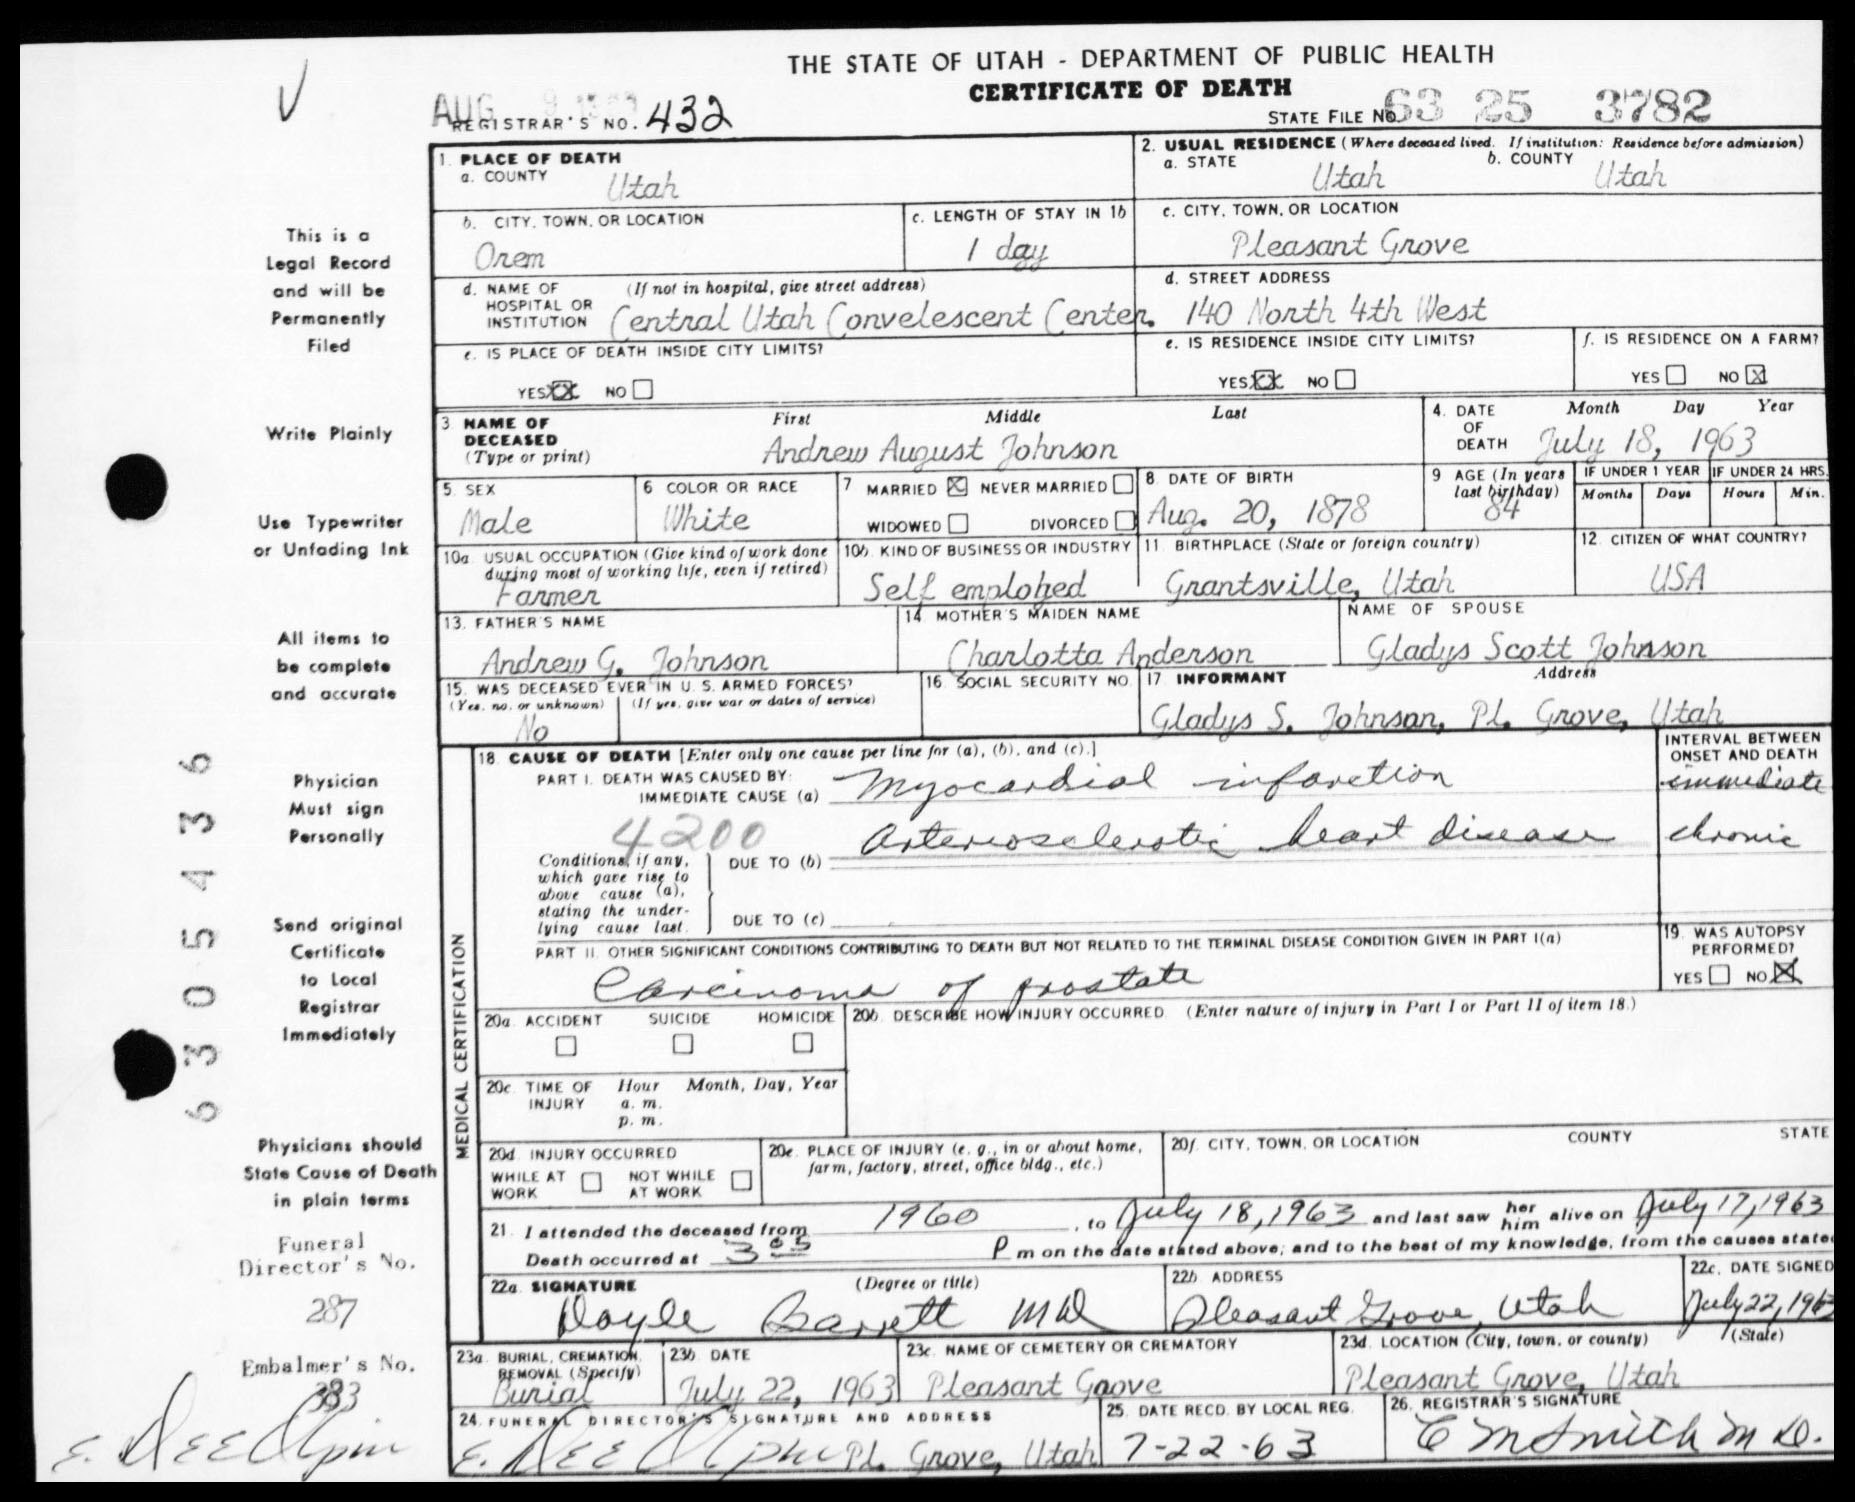 THE STATE OF UTAH - DEPARTMENT OF PUBLIC HEALTH
CERTIFICATE OF DEATH
AUG 9
REGISTRAR'S NO. 432
STATE FILE NO. 63 25 3782
1. PLACE OF DEATH
a. COUNTY Utah
2. USUAL RESIDENCE (Where deceased lived. If institution: Residence before admission)
a. STATE Utah b. COUNTY Utah
b. CITY, TOWN, OR LOCATION Orem
c. LENGTH OF STAY IN 1b 1 day
c. CITY, TOWN, OR LOCATION Pleasant Grove
d. NAME OF HOSPITAL OR INSTITUTION (If not in hospital, give street address) Central Utah Convelescent Center.
d. STREET ADDRESS 140 North 4th West
e. IS PLACE OF DEATH INSIDE CITY LIMITS? YES XX NO
e. IS RESIDENCE INSIDE CITY LIMITS? YES XX NO
f. IS RESIDENCE ON A FARM? YES NO X
3 NAME OF DECEASED (Type or print) First Middle Last
Andrew August Johnson
4. DATE OF DEATH Month Day Year
July 18, 1963
5. SEX Male
6 COLOR OR RACE White
7 MARRIED X NEVER MARRIED
WIDOWED DIVORCED
8. DATE OF BIRTH Aug. 20, 1878
9 AGE (In years last birthday) 84
IF UNDER 1 YEAR Months Days
IF UNDER 24 HRS. Hours Min.
10a. USUAL OCCUPATION (Give kind of work done during most of working life, even if retired) Farmer
10b. KIND OF BUSINESS OR INDUSTRY Self employed
11. BIRTHPLACE (State or foreign country) Grantsville, Utah
12. CITIZEN OF WHAT COUNTRY? USA
13. FATHER'S NAME Andrew G. Johnson
14 MOTHER'S MAIDEN NAME Charlotta Anderson
NAME OF SPOUSE Gladys Scott Johnson
15. WAS DECEASED EVER IN U. S. ARMED FORCES?
(Yes, no, or unknown) (If yes, give war or dates of service)
No
16. SOCIAL SECURITY NO.
17. INFORMANT Address
Gladys S. Johnson, Pl. Grove, Utah
18. CAUSE OF DEATH [Enter only one cause per line for (a), (b), and (c).]
INTERVAL BETWEEN ONSET AND DEATH
PART I. DEATH WAS CAUSED BY:
IMMEDIATE CAUSE (a) Myocardial infarction immediate
4200
Conditions, if any, which gave rise to above cause (a), stating the underlying cause last.
DUE TO (b) Arteriosclerotic heart disease chronic
DUE TO (c)
PART II. OTHER SIGNIFICANT CONDITIONS CONTRIBUTING TO DEATH BUT NOT RELATED TO THE TERMINAL DISEASE CONDITION GIVEN IN PART I(a)
Carcinoma of prostate
19. WAS AUTOPSY PERFORMED?
YES NO X
MEDICAL CERTIFICATION
20a. ACCIDENT SUICIDE HOMICIDE
20b. DESCRIBE HOW INJURY OCCURRED. (Enter nature of injury in Part I or Part II of item 18.)
20c. TIME OF INJURY Hour Month, Day, Year
a. m.
p. m.
20d. INJURY OCCURRED
WHILE AT WORK NOT WHILE AT WORK
20e. PLACE OF INJURY (e. g., in or about home, farm, factory, street, office bldg., etc.)
20f. CITY, TOWN, OR LOCATION COUNTY STATE
21. I attended the deceased from 1960, to July 18, 1963 and last saw her him alive on July 17, 1963
Death occurred at 3 05 P m on the date stated above; and to the best of my knowledge, from the causes state
22a. SIGNATURE (Degree or title)
Doyle Barrett MD
22b. ADDRESS Pleasant Grove, Utah
22c. DATE SIGNED July 22, 1963
23a. BURIAL, CREMATION, REMOVAL (Specify) Burial
23b. DATE July 22, 1963
23c. NAME OF CEMETERY OR CREMATORY Pleasant Grove
23d. LOCATION (City, town, or county) (State)
Pleasant Grove, Utah
24. FUNERAL DIRECTOR'S SIGNATURE AND ADDRESS
E. Dee Olpin Pl. Grove, Utah
25. DATE RECD. BY LOCAL REG. 7-22-63
26. REGISTRAR'S SIGNATURE C M Smith M D.
This is a
Legal Record
and will be
Permanently
Filed
Write Plainly
Use Typewriter
or Unfading Ink
All items to
be complete
and accurate
Physician
Must sign
Personally
Send original
Certificate
to Local
Registrar
Immediately
Physicians should
State Cause of Death
in plain terms
Funeral
Director's No.
287
Embalmer's No.
383
E. Dee Olpin
6305436